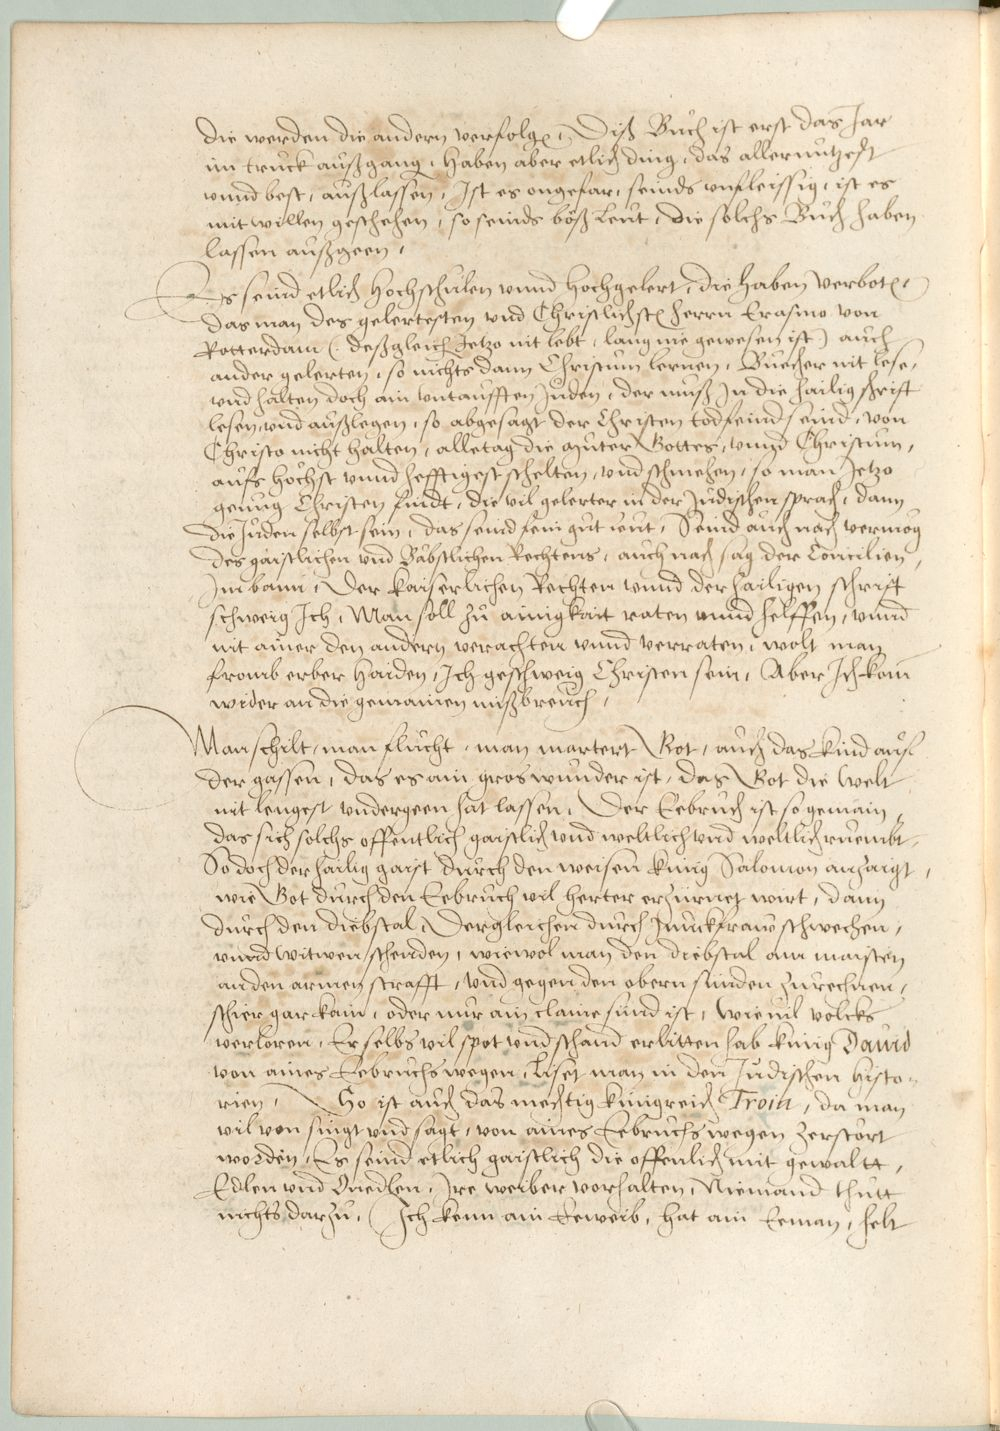 die werden die andern verfolgn, Diß Buch ist erst das Jar
im truck außgang, haben aber etlich ding, das allernutzest
vnnd best, außlassen, Ist es ongefar, seinds vnfleissig, ist es
mit willen geschehen, so seinds böß leut, die solchs Buch haben
lassen außgeen,
Es seind etlich Hochschulen vnnd hochgelert, die haben verbotn,
das man des gelertesten vnd Christlichstn herrn Erasmo von
Rotterdam (deßgleich Jetzo nit lebt, lang nie gewesen ist) auch
ander gelerten, so nichts dann Christum lernen, Buecher nit lese,
vnd halten doch ain vntaufften Juden, der muß In die hailig schrift
lesen, vnd außlegen, so abgesagt der Christen todfeind seind, von
Christo nicht halten, alletag die muter Gottes, vnnd Christum,
aufs höchst vnnd hefftigest schelten, vnd schmehen, so man Jetzo
genug Christen findt, die vil gelerter in der Judischen sprach, dann
die Juden selbst sein, das seind fein gut leut, Seind auch nach vermög
des gaistlichen vnd Bäbstlichen Rechtens, auch nach sag der Concilien,
Im bann, Der kaiserlichen Rechten vnnd der hailigen schrift
schweig Ich, Man soll zu ainigkait raten vnnd helffen, vnnd
nit ainer den andern verachten vnnd verraten, wolt man
fromb erber haiden, Ich geschweig Christen sein, Aber Ich kom
wider an die gemainen mißbreuch,
Man schilt, man flucht, man martert Got, auch das kind auf
der gassen, das es ain gros wunder ist, das Got die Welt
nit lengest vndergeen hat lassen, Der Eebruch ist so gemain,
das sich solchs offentlich gaistlich vnd weltlich vnd weltlich ruembt,
So doch der hailig gaist durch den weisen kunig Salomon anzaigt,
wie Got durch den Eebruch vil herter erzürnet wirt, dann
durch den diebstal, Dergleichen durch Junckfraw schwechen,
vnnd witwen schenden, wiewol man den diebstal am maisten
an den armen strafft, vnd gegen den obern sünden zurechnen,
schier gar kain, oder nur ain claine sünd ist, Wieuil volcks
verloren, Er selbs vil spot vnd schand erlitten hab kunig Dauid
von aines Eebruchs wegen, Liset man in den Judischen histo-
rien, So ist auch das mechtig kunigreich Troia, da man
vil von singt vnd sagt, von aines Eebruchs wegen zerstört
worden, Es seind etlich gaistlich die offenlich mit gewaltt,
Edlen vnd Vnedlen, Ire weiber vorhalten, Niemand thutt
nichts darzu, (Ich kenn ain Eeweib, hat ain Eeman, helt